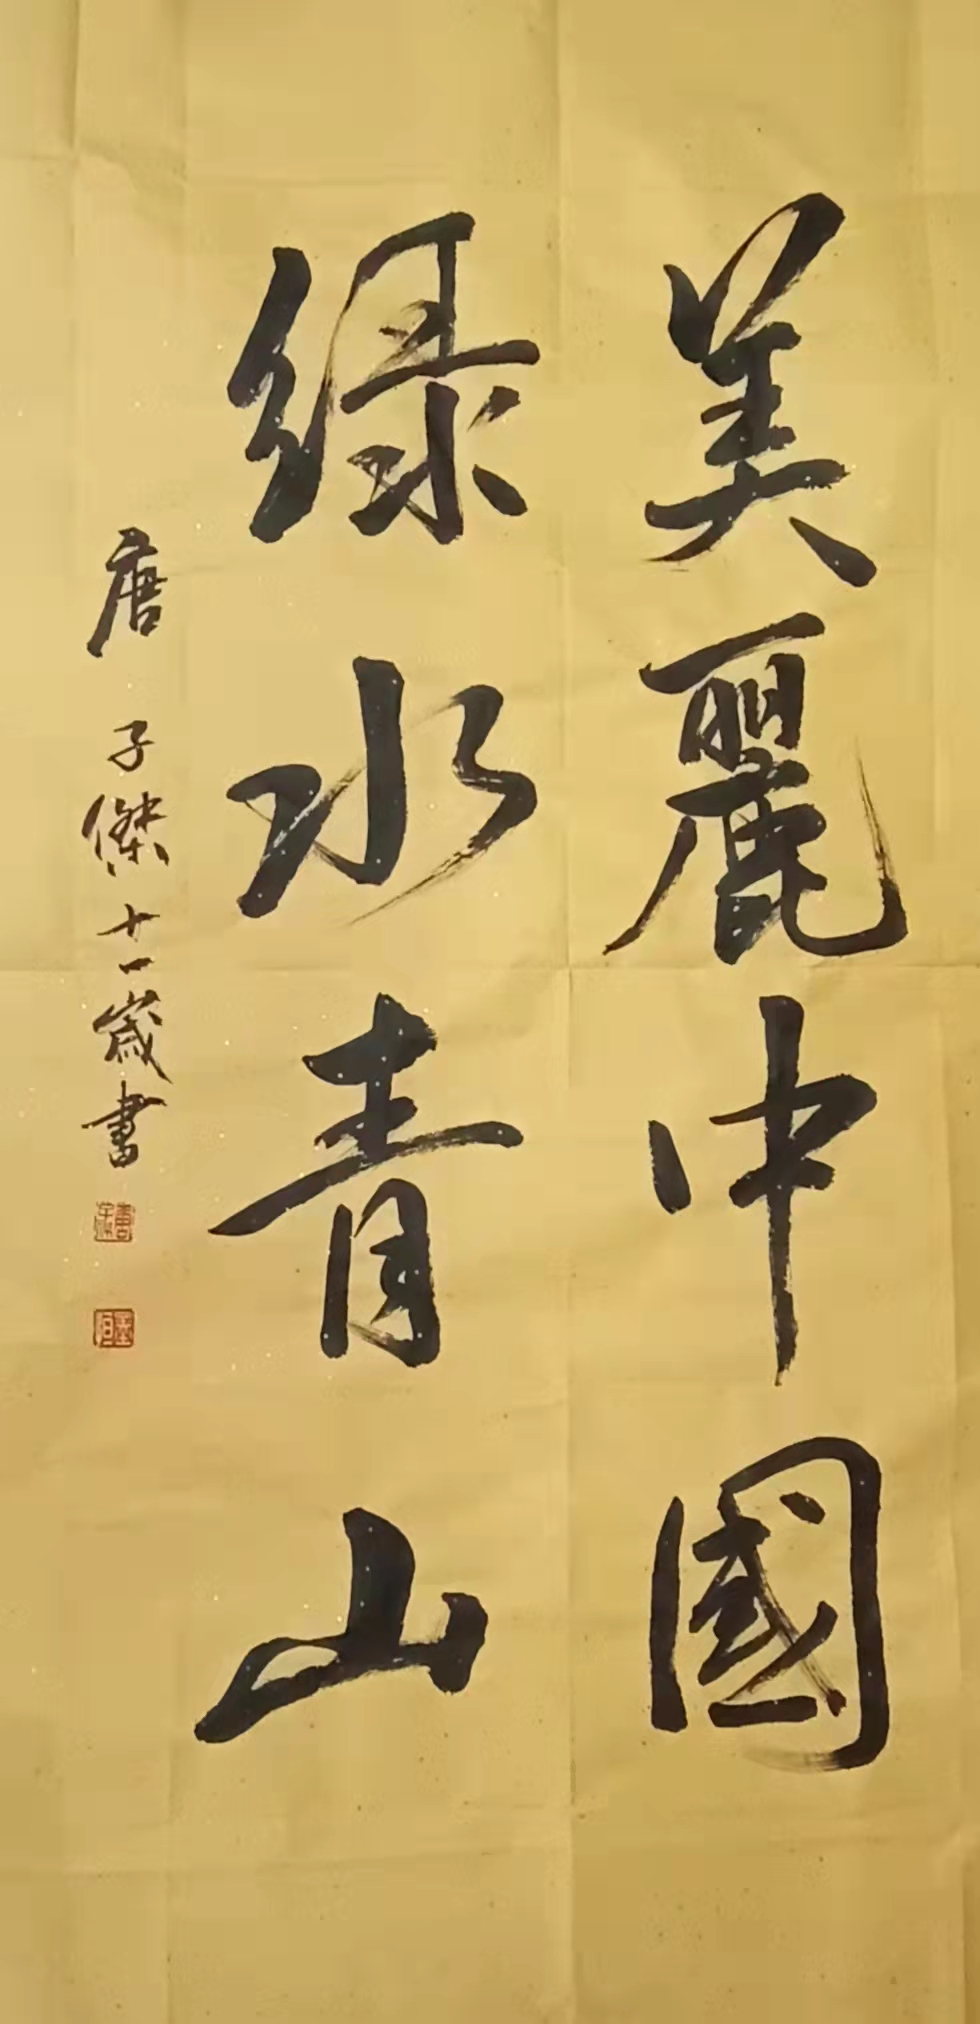 美麗中國
绿水青山
唐子傑十一歲書